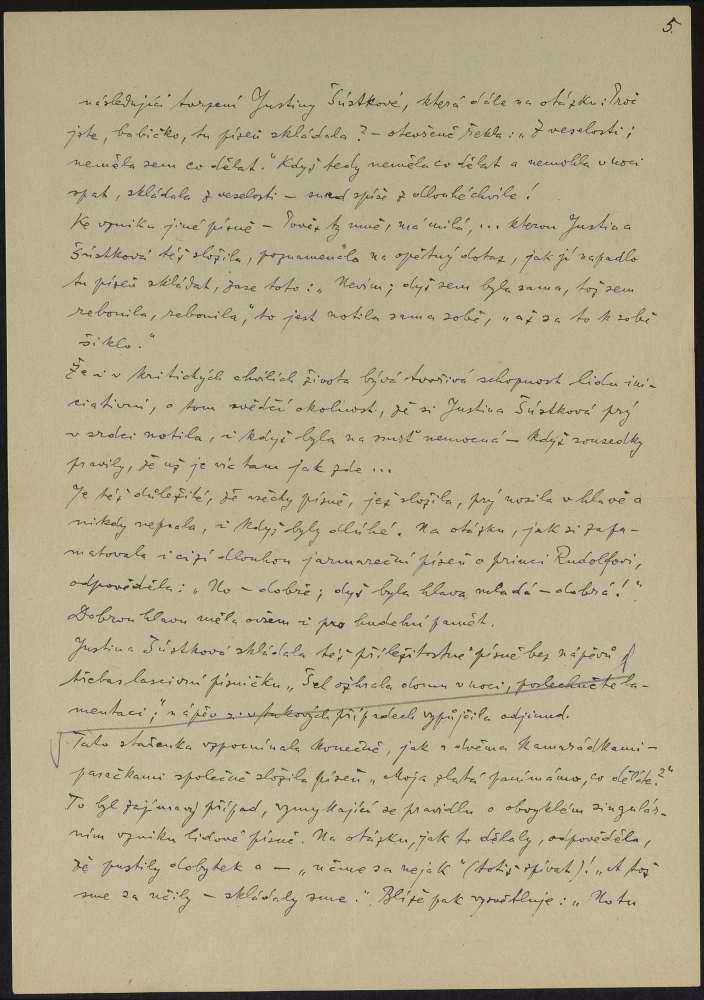 5.
následující tvrzení Justiny Šústkové, která dále na otázku: Proč
jste, babičko, tu píseň skládala? – otevřeně řekla: „Z veselosti;
neměla sem co dělat." Když tedy neměla co dělat a nemohla v noci
spat, skládala z veselosti – snad spíše z dlouhé chvíle!
Ke vzniku jiné písně – Pověz ty mně, má milá, ... kterou Justina
Šústková též složila, poznamenala na opětný dotaz, jak jí napadlo
tu píseň skládat, zase toto: „Nevím; dyž sem byla sama, tož sem
rebonila, rebonila," to jest notila sama sobě, „až sa to k sobě
šiklo."
Že i v kritických chvílích života bývá tvořivá schopnost lidu ini-
ciativní, o tom svědčí okolnost, že si Justina Šústková prý
v srdci notila, i když byla na smrť nemocná – když sousedky
pravily, že už je víc tam jak zde ...
Je též důležité, že všecky písně, jež složila, prý nosila v hlavě a
nikdy nepsala, i když byly dlúhé. Na otázku, jak si zapa-
matovala i cizí dlouhou jarmareční píseň o princi Rudolfovi,
odpověděla: „No – dobře; dyž byla hlava mladá – dobrá!"
Dobrou hlavu měla ovšem i pro hudební paměť.
Justina Šústková skládala též příležitostné písně bez nápěvů
třebas lascivní písničku „Šel ožrala domu v noci, poslechněte la-
mentaci;" nápěv si v takových případech vypůjčila odjinud.
Tato stařenka vzpomínala konečně, jak s dvěma kamarádkami –
pasačkami společně složila píseň „Moja zlatá panímámo, co děláte?"
To byl zajímavý případ, vymykající se pravidlu o obvyklém singulár-
ním vzniku lidové písně. Na otázku, jak to dělaly, odpověděla,
že pustily dobytek a – „učme sa nejak" (totiž zpívat)! „A tož
sme sa učily – skládaly sme." Blíže pak vysvětluje: „No tu